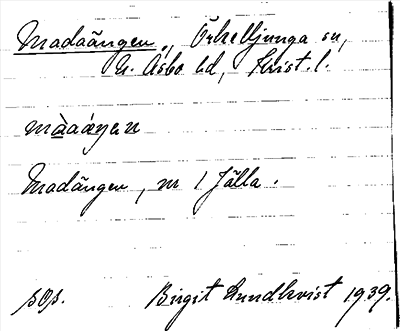 Madaängen, Örkelljunga sn,
N. Åsbo hd, Krist. l.
màaáŋen
Madängen, nr 1 Jälla.
Birgit Lundkvist 1939.